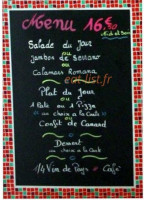 Menu 16.€50
Midi et Soir
Salade du Jour
ou
Jambon de Serrano
ou
Calamars Romana
eat-list.fr
Plat du Jour
ou
1 Pâte ou 1 Pizza
au choix à la Carte
ou
Confit de Canard
Dessert
au choix à la Carte
1/4 Vin de Pays Café